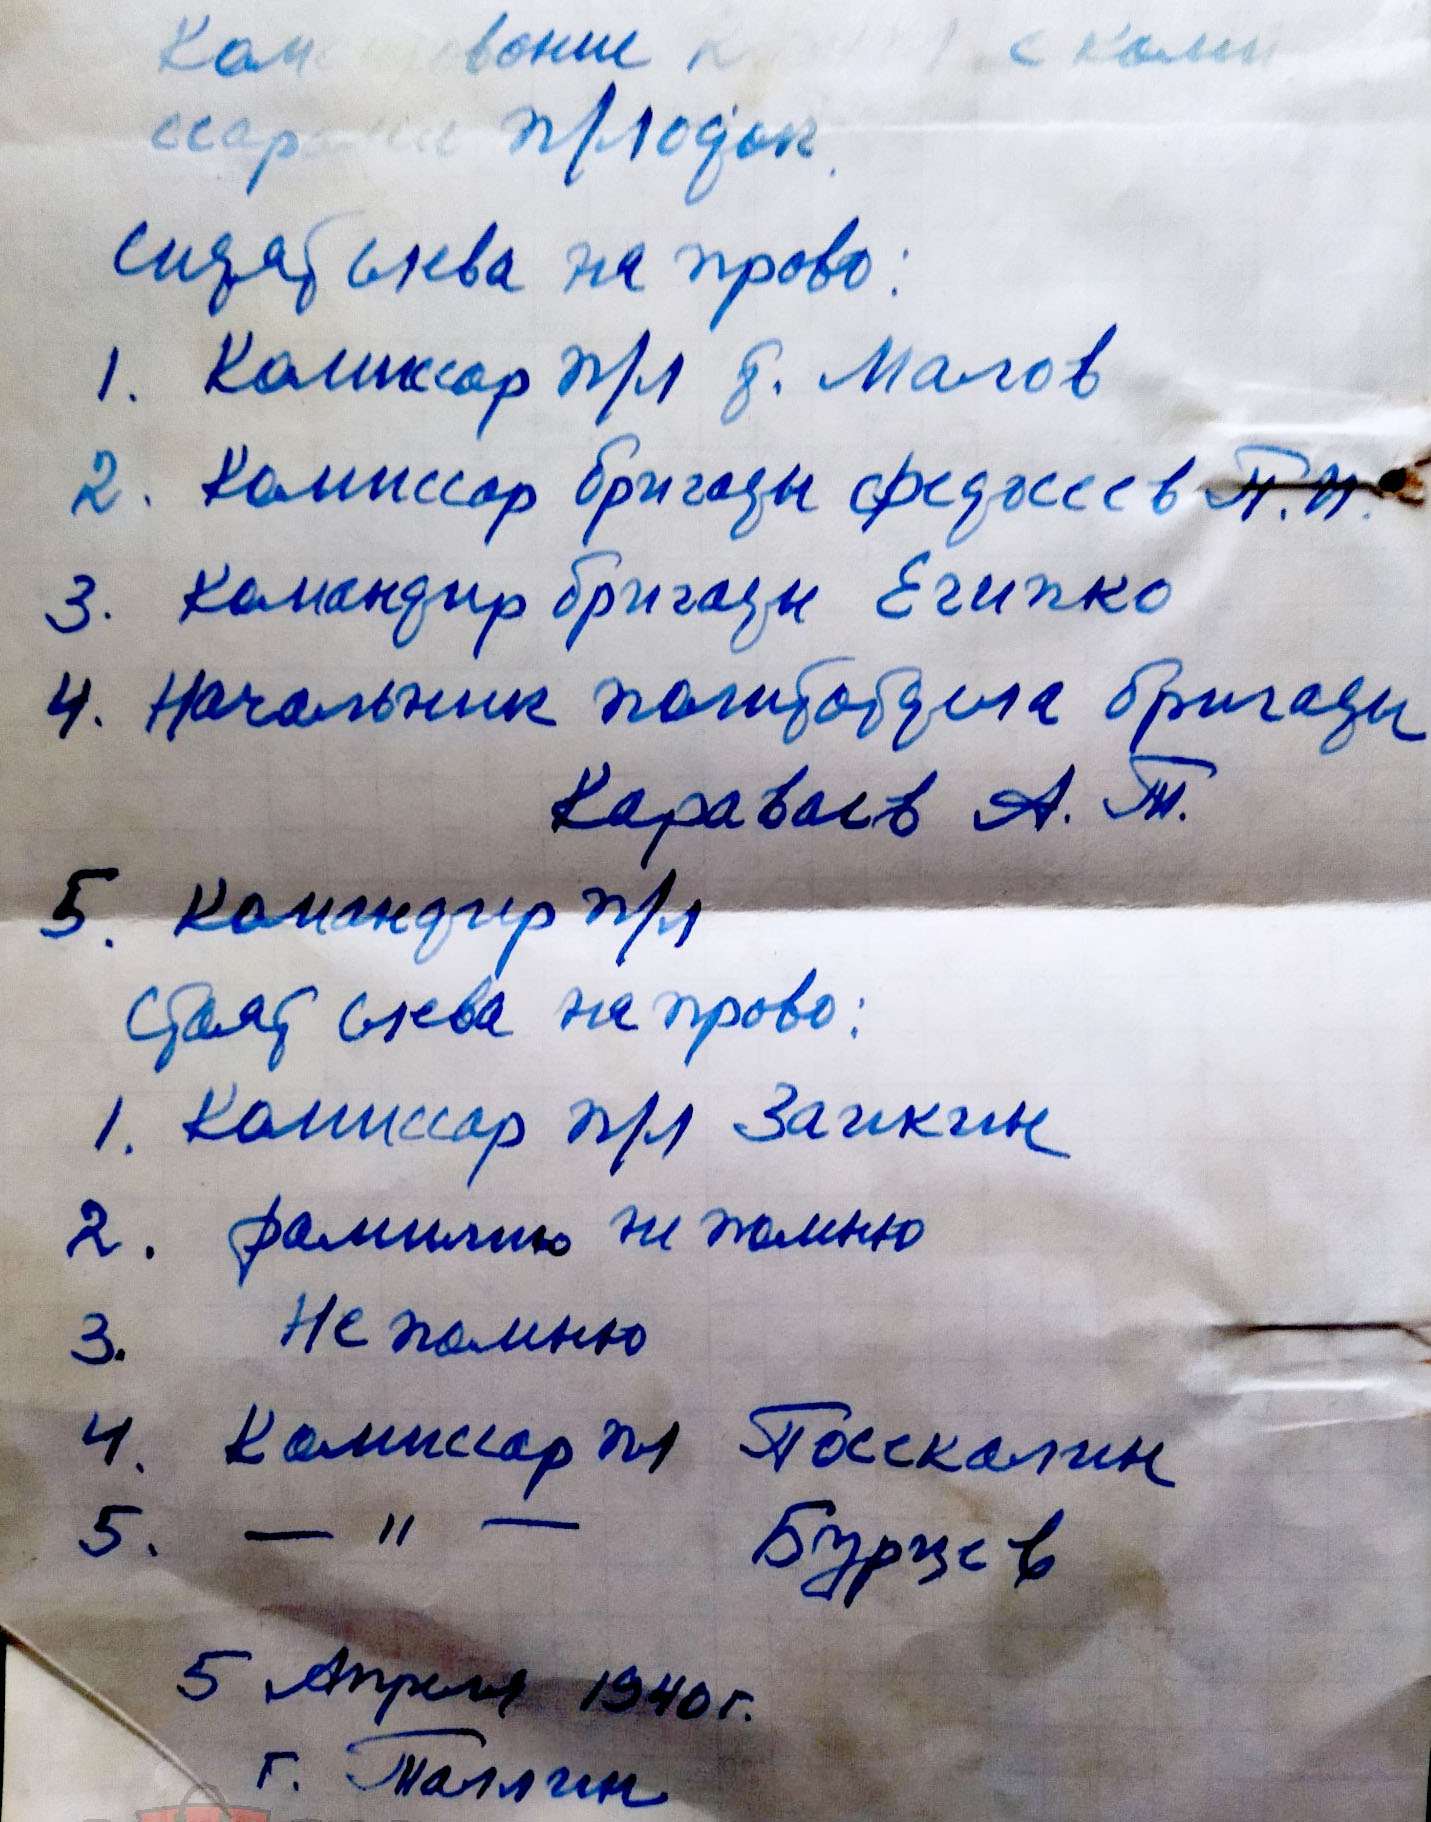 сидят слева на право:
1. Комиссар п/л т. Малов
2. Комиссар бригады Федосеев П.И.
3. Командир бригады Египко
4. Начальник политотдела бригады
Караваев А. Т.
5. Командир п/л
стоят слева на право:
1. Комиссар п/л Заикин
2. фамилию не помню
3. Не помню
4. Комиссар пл Поскалин
5. — " — Бурцев
5 Апреля 1940 г.
г. Таллин